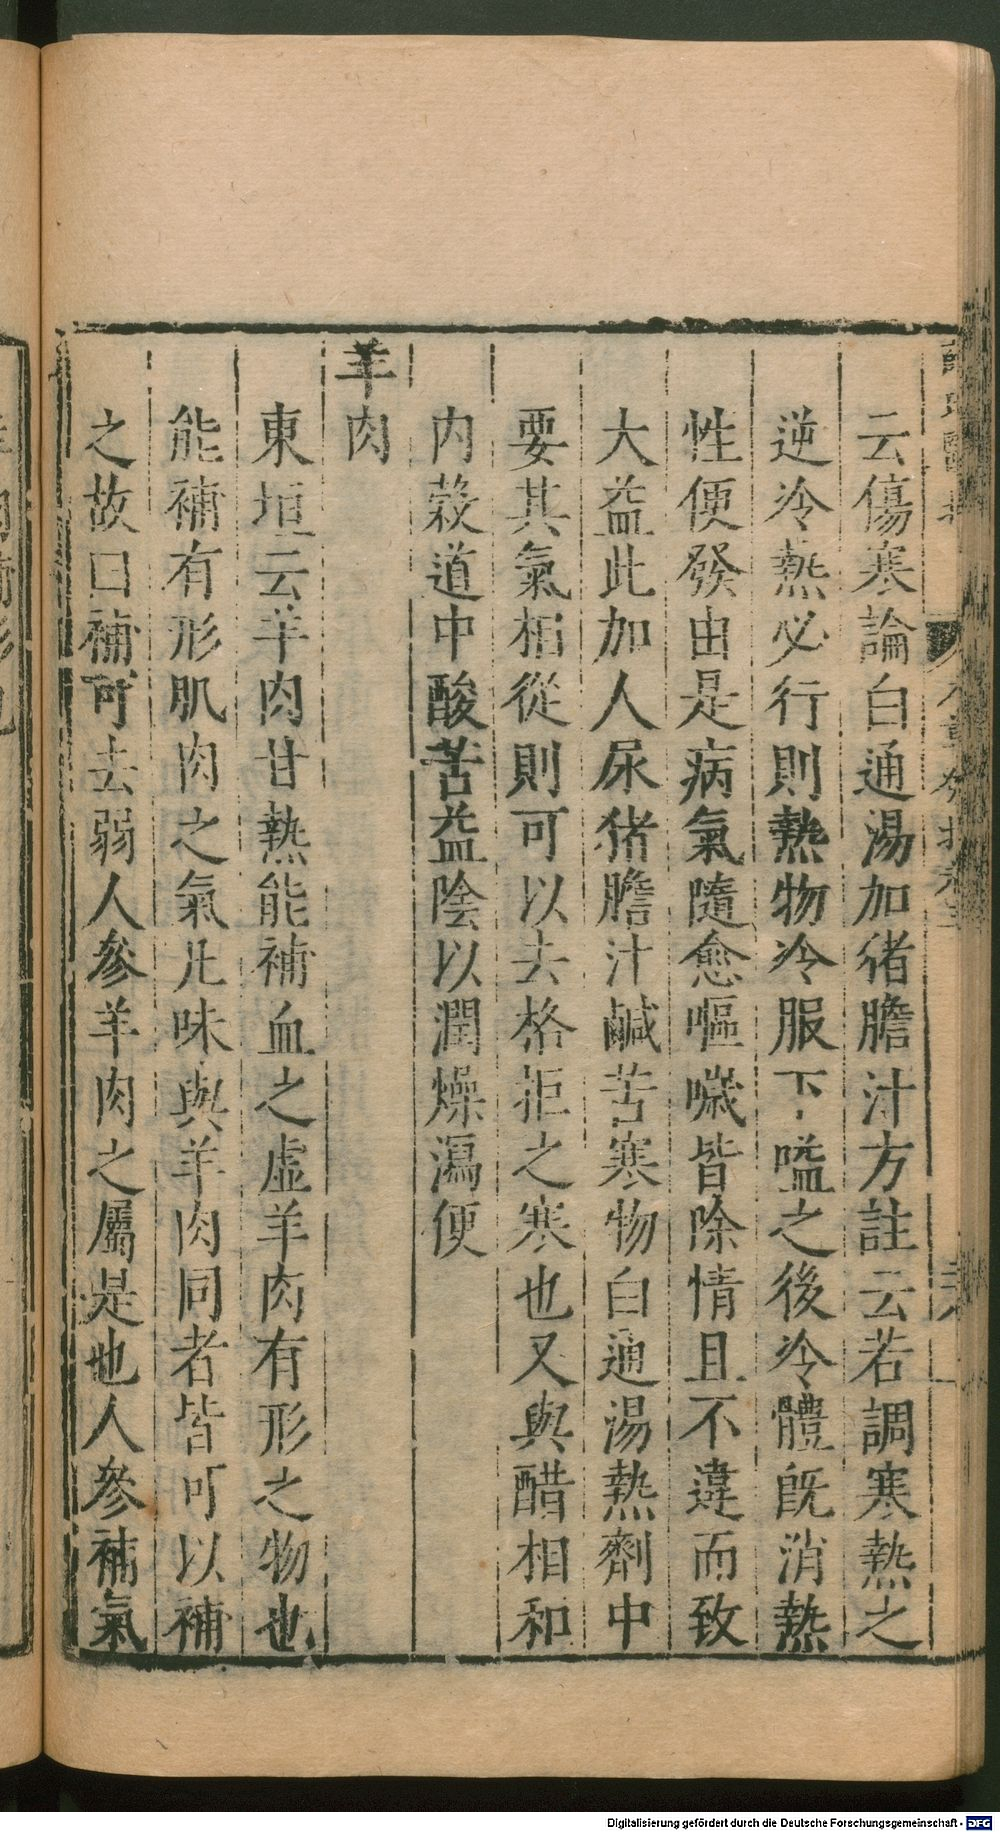 云傷寒論白通湯加猪膽汁方註云若調寒熱之
逆冷熱必行則熱物冷服下嗌之後冷體旣消熱
性便發由是病氣隨愈嘔噦皆除情且不違而致
大益此加人尿猪膽汁鹹苦寒物白通湯熱劑中
要其氣相從則可以去格拒之寒也又與醋相和
内糓道中酸苦益陰以潤燥瀉便
羊肉
東垣云羊肉甘熱能補血之虛羊肉有形之物也
能補有形肌肉之氣凡味與羊肉同者皆可以補
之故曰補可去弱人參羊肉之屬是也人參補氣
Digitalisierung gefördert durch die Deutsche Forschungsgemeinschaft - DFG